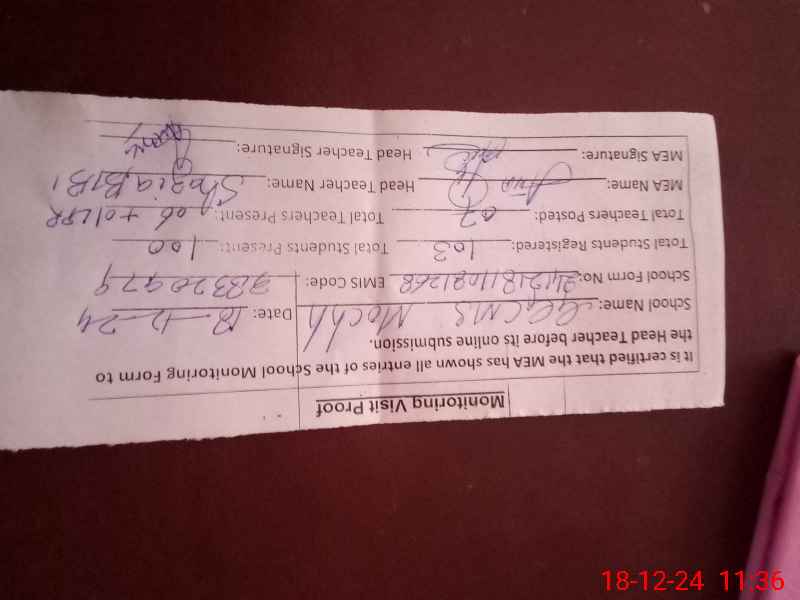 Monitoring Visit Proof
It is certified that the MEA has shown all entries of the School Monitoring Form to
the Head Teacher before its online submission.
School Name: GGCMS Mochh Date: 18-12-24
School Form No: EMIS Code:
Total Students Registered: 103 Total Students Present: 100
Total Teachers Posted: 07 Total Teachers Present: 06 + 01
MEA Name: Head Teacher Name: Shazia BiBi
MEA Signature: Head Teacher Signature:
18-12-24 11:36